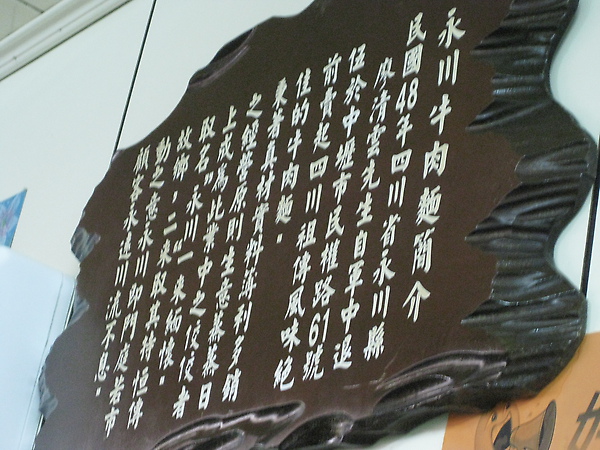 永川牛肉麵簡介
民國48年四川省永川縣
廖清雲先生自軍中退
伍於中壢市民權路61號
前賣起四川祖傳風味絕
佳的牛肉麵。
秉著真材實料薄利多銷
之經營原則生意蒸蒸日
上成為此業中之佼佼者
取名"永川"一來緬懷
故鄉,二來取其持恒傳
動之意永川即門庭若市
顧客永遠川流不息。